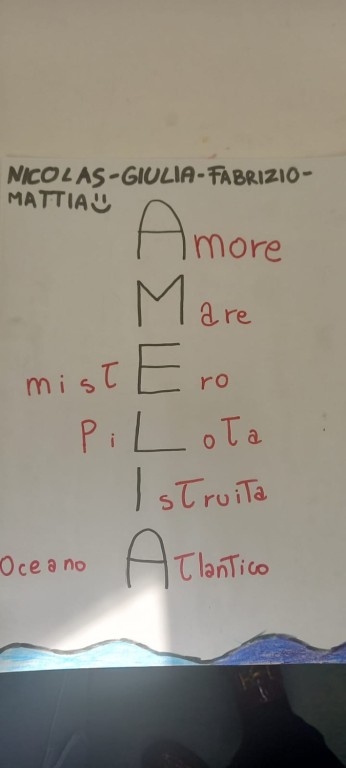 NICOLAS-GIULIA-FABRIZIO-
MATTIA
Amore
Mare
misTEro
PiLoTa
IsTruiTa
Oceano ATlanTico